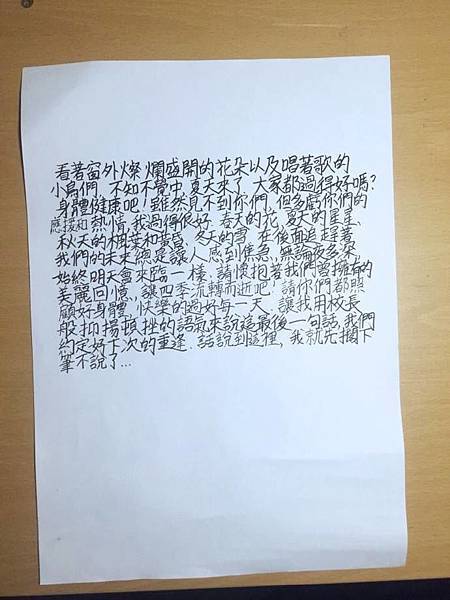 看著窗外燦爛盛開的花朵以及唱著歌的
小鳥們，不知不覺中，夏天來了，大家都過得好嗎？
身體健康吧！雖然見不到你們，但多虧你們的
應援和熱情，我過得很好，春天的花，夏天的星星，
秋天的楓葉和黃昏，冬天的雪，在後面追趕著
我們的未來總是讓人感到焦急，無論夜多深，
始終明天會來臨一樣，請懷抱著我們曾擁有的
美麗回憶，讓四季流轉而逝吧，請你們都照
顧好身體，快樂的過好每一天，讓我用校長
般抑揚頓挫的語氣來說這最後一句話，我們
約定好下次的重逢，話說到這裡，我就先擱下
筆不說了...